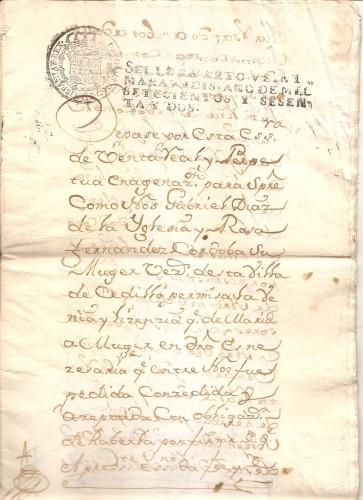 SELLO QVARTO, VEINTE
MARAVEDIS, AÑO DE MIL
SETECIENTOS Y SESEN
TA Y DOS.
Sepase por esta Ess.ra
de Venta Real y Perpe
tua enagenaz.on para Spre
Como Nos Gabriel Diaz
de la Yglesia y Rosa
Fernandez Cordoba Su
Muger Vez.s de esta Villa
de Cedillo, premisa la lize
de Marid
a Muger en Dro es ne
zesaria q.e entre Nos fue
pedida Conzedida y
azeptada Con obligaz.on
de haberla por firme